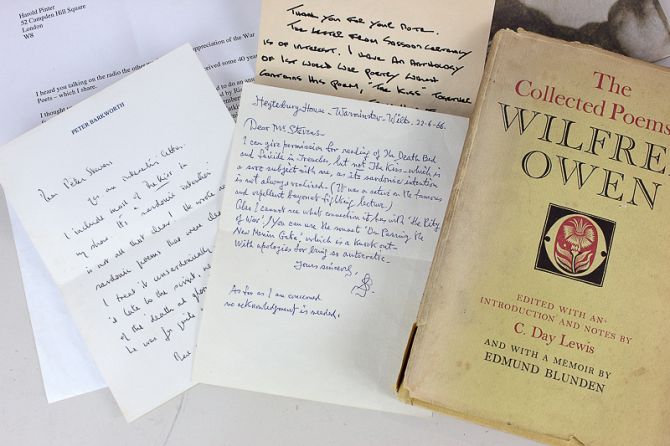 Harold Pinter
52 Campden Hill Square
London
W8
appreciation of the War
I heard you talking on the radio the other
Poets - which I share.
received some 40 years
I thought
to do an
THANK YOU FOR YOUR NOTE.
THE LETTER FROM SASSOON CERTAINLY
IS OF INTEREST. I HAVE AN ANTHOLOGY
OF 1ST WORLD WAR POETRY WHICH
CONTAINS HIS POEM, "THE KISS" TOGETHER
PETER BARKWORTH
Dear Peter Stevens
an interesting letter.
I include most of The Kiss in
my show. It's a sardonic
is not all that clear! He wrote
sardonic poems that were
I treat it unsardonically
of the death
he was for
Heytesbury House - Warminster - Wilts. 22-6-66.
Dear Mr Stevens -
I can give permission for reading of The Death Bed
and Suicide in Trenches, but not The Kiss - which is
a sore subject with me, as its sardonic intention
is not always realised. (It was a satire on the famous
and repellent bayonet fighting lecture.)
Also I cannot see what connection it has with 'the Pity
of War'. You can use the sonnet 'On Passing the
New Menin Gate', which is a knock out.
With apologies for being so autocratic.
Yours sincerely,
SS.
As far as I am concerned
no acknowledgment is needed.
The
Collected Poems
WILFRE
OWEN
EDITED WITH AN
INTRODUCTION AND NOTES BY
C. Day Lewis
AND WITH A MEMOIR BY
EDMUND BLUNDEN